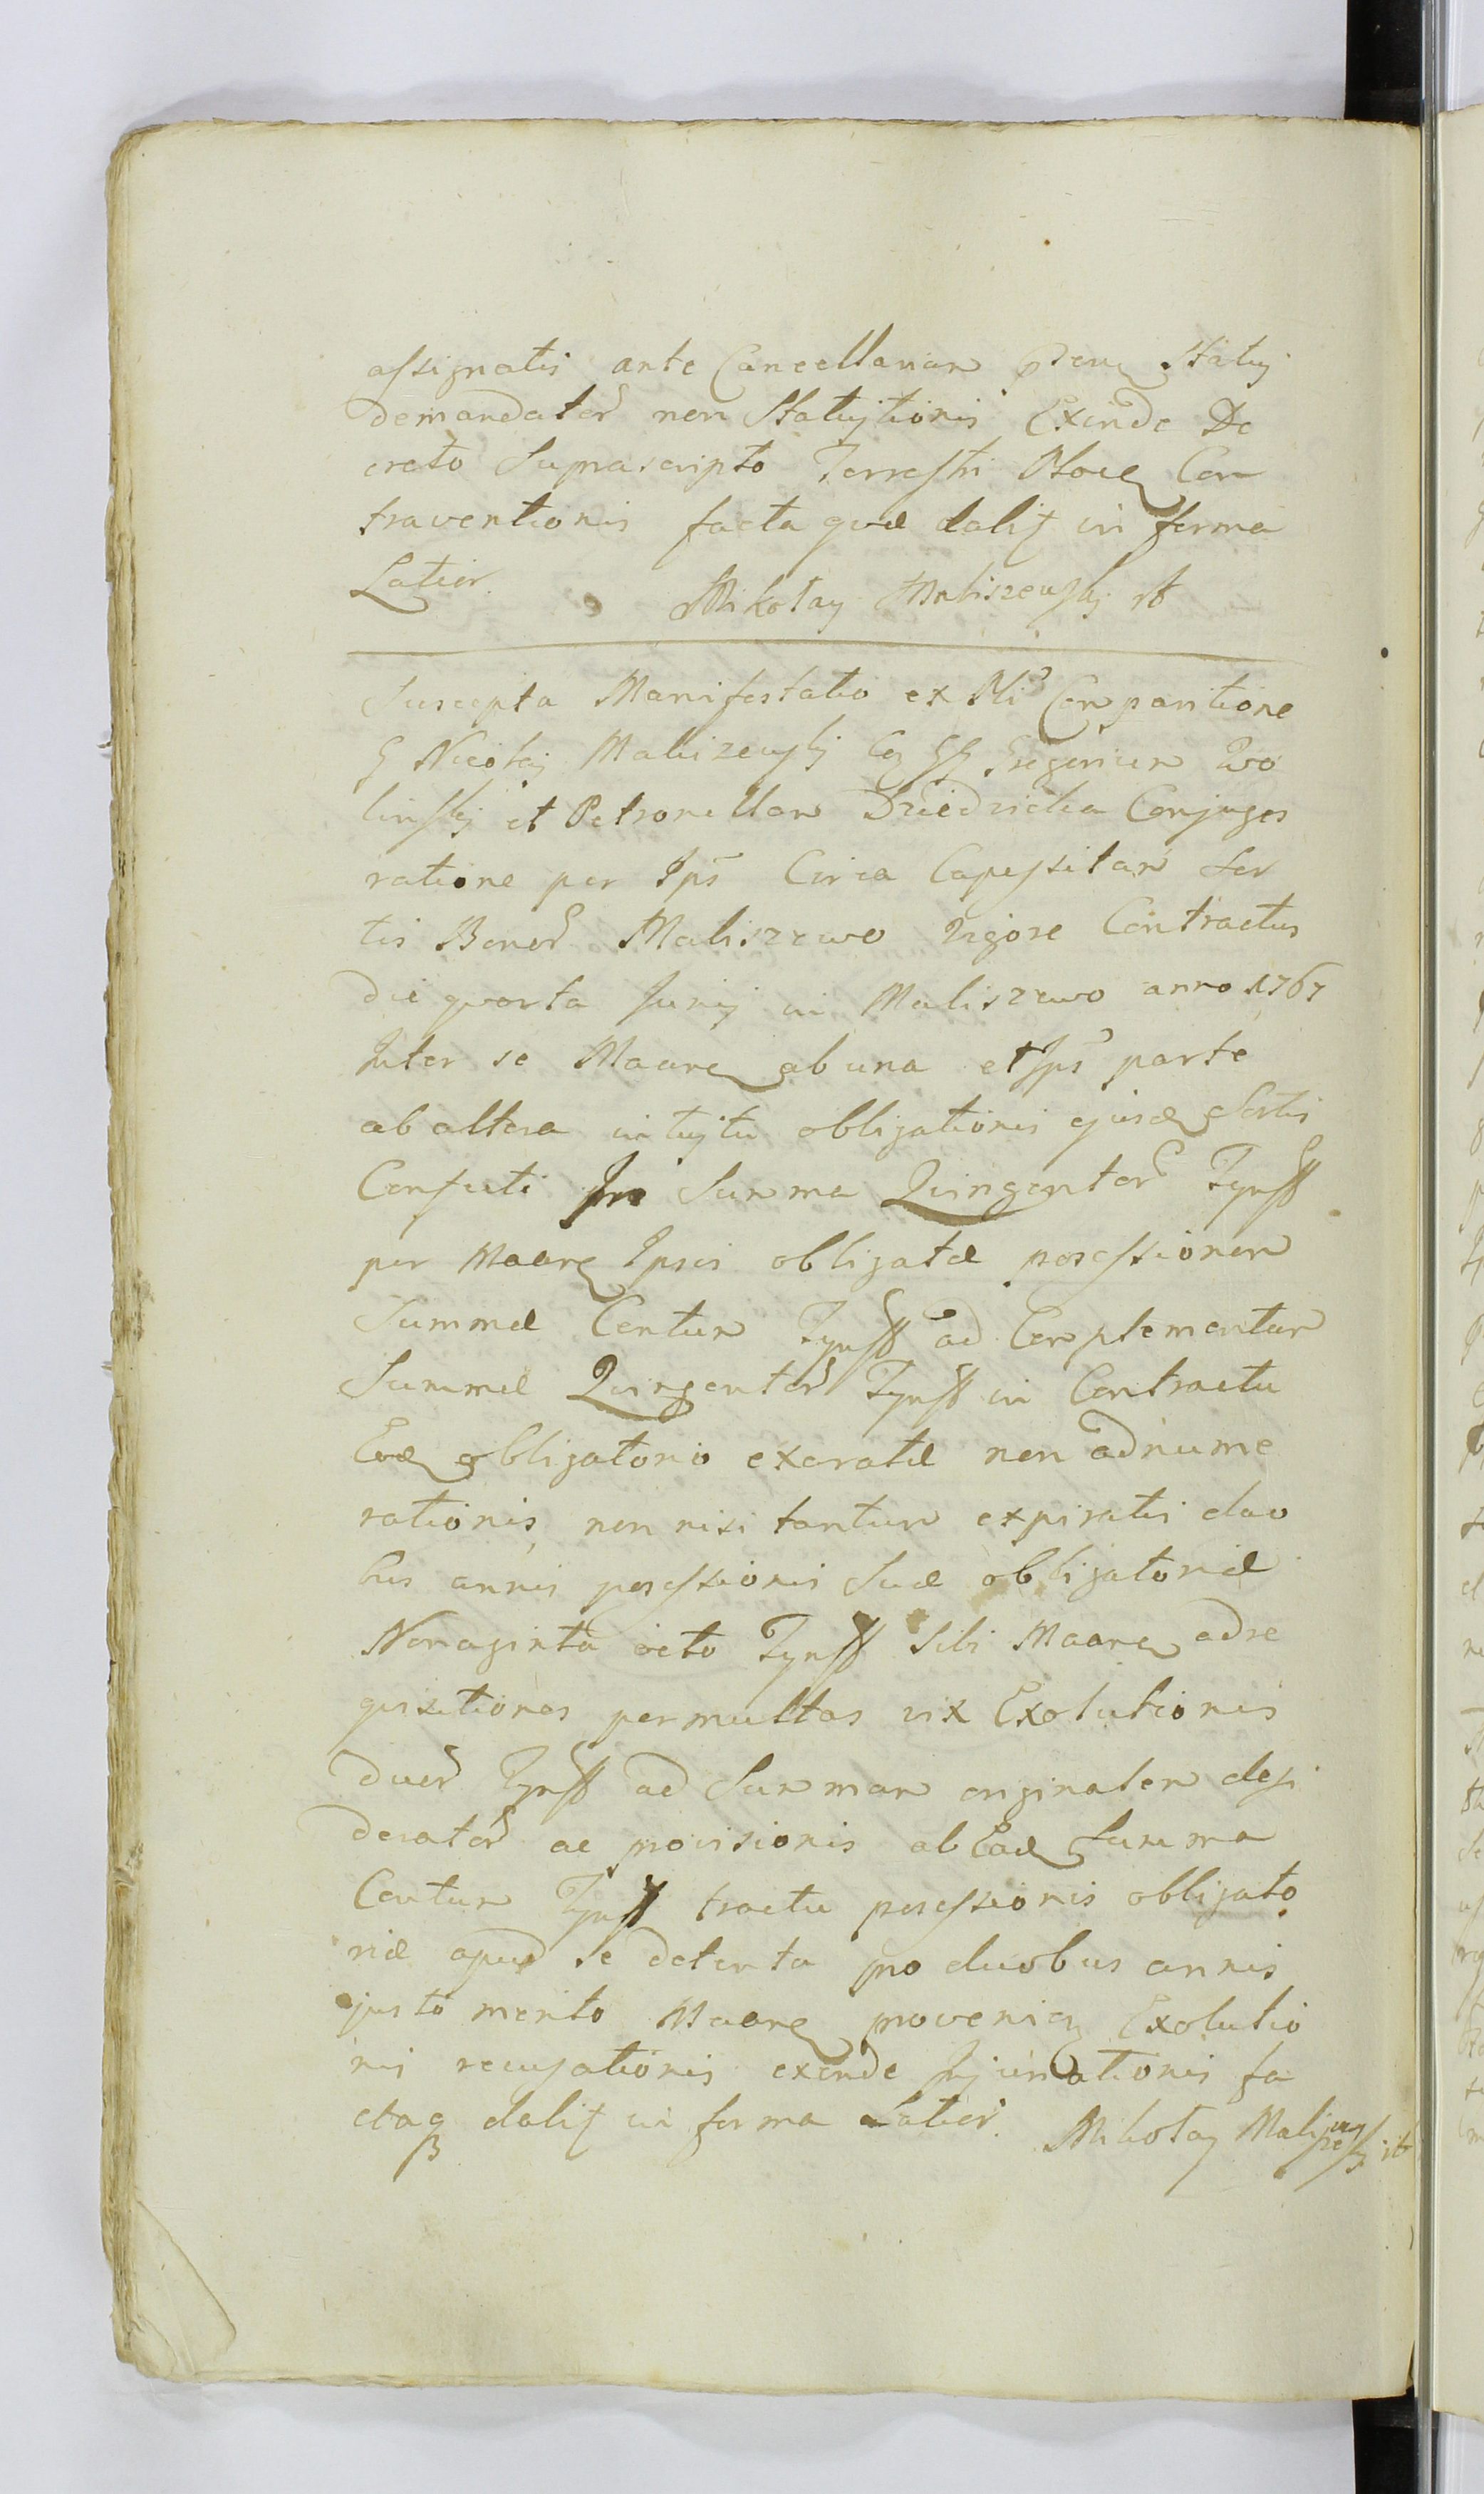 assignatis ante Cancellariam Statuj
demandator non Statujtionis Exinde De
creto Suprascripto Terrestri Ploceñ Con
traventionis facta quæ latiꝰ in forma
Latior. Mikołay Maliszewskj
Suscepta Manifestatio ex Comparitione
G Nicolaj Maliszewskj G Gregorium Wo
linskj et Petronellam Dziedzicka Conjuges
ratione per Ips Circa Capessitam Sor
tis Bonor Maliszewo vigore Contractus
die quarta Junij in Maliszewo anno 1767
Inter se Maareñ ab una et Ips parte
ab altera intujtu obligationis ejusd Sortis
Confecti pro Summa Quingentor Tynff
per Maareñ Ipsis obligatæ possessionem
Summæ Centum Tynff ad Complementum
Summæ Quingentor Tynff in Contractu
Eod obligatorio exaratæ non adnume
rationis, non nisi tantum expiratis duo
bus annis possessionis Suæ obligatoriæ
Nonaginta octo Tynff Sibi Maareñ adre
quisitiones permultas vix Exolutionis
duor Tynff ad Summam originalem desi
derator ac provisionis ab Ead Summa
Centum Tynff tractu possessionis obligato
riæ apud se detenta pro duobus annis
justo merito Maareñ provenieñ Exolutio
nis recusationis exinde Injuriationis fa
ctaq latiꝰ in forma Latior. Mikołay Maliszewskj